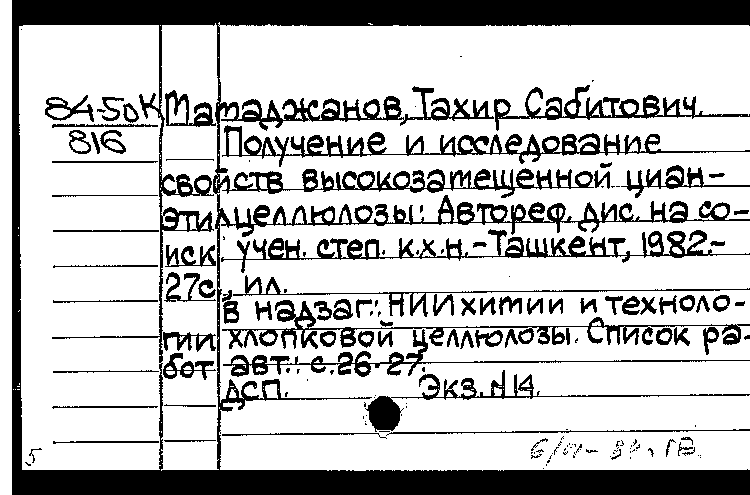 84-5ДК Матаджанов, Тахир Сабитович.
816 Получение и исследование
свойств высокозамещенной циан-
этилцеллюлозы: Автореф. дис. на со-
иск. учен. степ. к.х.н. - Ташкент, 1982.-
27с., ил.
В надзаг.: НИИ химии и техноло-
гии хлопковой целлюлозы. Список ра-
бот авт.: с. 26-27.
ДСП. Экз. N 14.
5